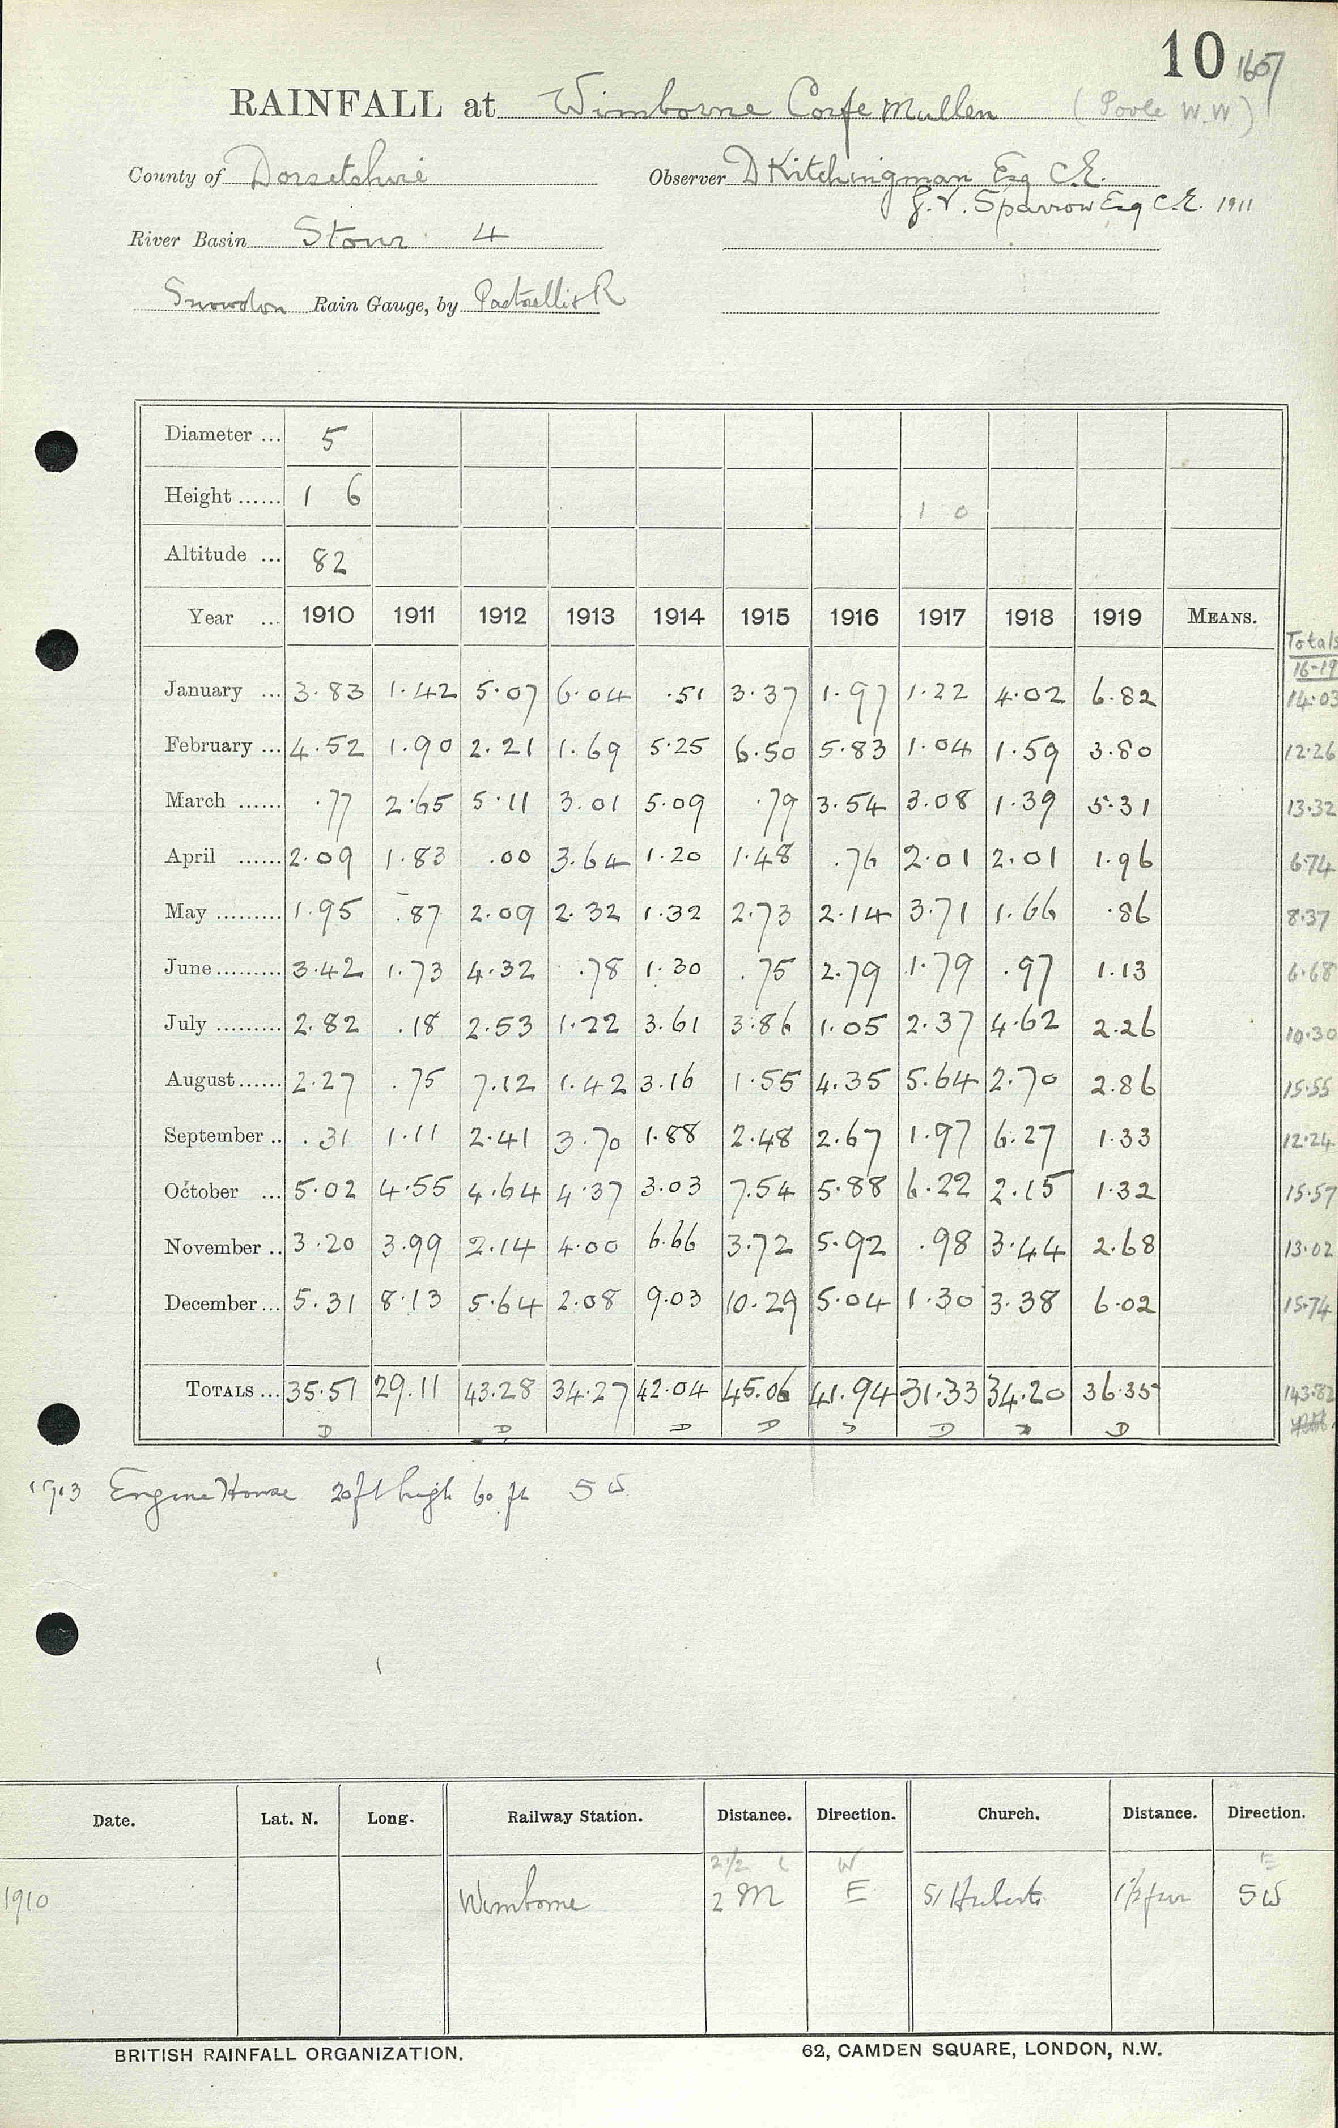 10 1607
RAINFALL at Wimborne Corfe Mullen (Poole W.W)
County of Dorsetshire Observer D Kitchingman Esq C.E.
G.V. Sparrow Esq C.E. 1911
River Basin Stour 4
Snowdon Rain Gauge, by Pastorelli & R
Diameter ... 5
Height ...... 1 6 1 0
Altitude ... 82
Year ... 1910 1911 1912 1913 1914 1915 1916 1917 1918 1919 MEANS. Totals 16-19
January ... 3.83 1.42 5.07 6.04 .51 3.37 1.97 1.22 4.02 6.82 14.03
February ... 4.52 1.90 2.21 1.69 5.25 6.50 5.83 1.04 1.59 3.80 12.26
March ...... .77 2.65 5.11 3.01 5.09 .79 3.54 3.08 1.39 5.31 13.32
April ...... 2.09 1.83 .00 3.64 1.20 1.48 .76 2.01 2.01 1.96 6.74
May ......... 1.95 .87 2.09 2.32 1.32 2.73 2.14 3.71 1.66 .86 8.37
June ......... 3.42 1.73 4.32 .78 1.30 .75 2.79 1.79 .97 1.13 6.68
July ......... 2.82 .18 2.53 1.22 3.61 3.86 1.05 2.37 4.62 2.26 10.30
August ...... 2.27 .75 7.12 1.42 3.16 1.55 4.35 5.64 2.70 2.86 15.55
September .. .31 1.11 2.41 3.70 1.88 2.48 2.67 1.97 6.27 1.33 12.24
October ... 5.02 4.55 4.64 4.37 3.03 7.54 5.88 6.22 2.15 1.32 15.57
November .. 3.20 3.99 2.14 4.00 6.66 3.72 5.92 .98 3.44 2.68 13.02
December ... 5.31 8.13 5.64 2.08 9.03 10.29 5.04 1.30 3.38 6.02 15.74
TOTALS ... 35.51 29.11 43.28 34.27 42.04 45.06 41.94 31.33 34.20 36.35 143.82
D D D D D D D D
1913 Engine House 20ft high 60 ft SW
Date. Lat. N. Long. Railway Station. Distance. Direction. Church. Distance. Direction.
2 1/2 W E
1910 Wimborne 2 M E St Huberts 1 1/2 fur SW
BRITISH RAINFALL ORGANIZATION. 62, CAMDEN SQUARE, LONDON, N.W.